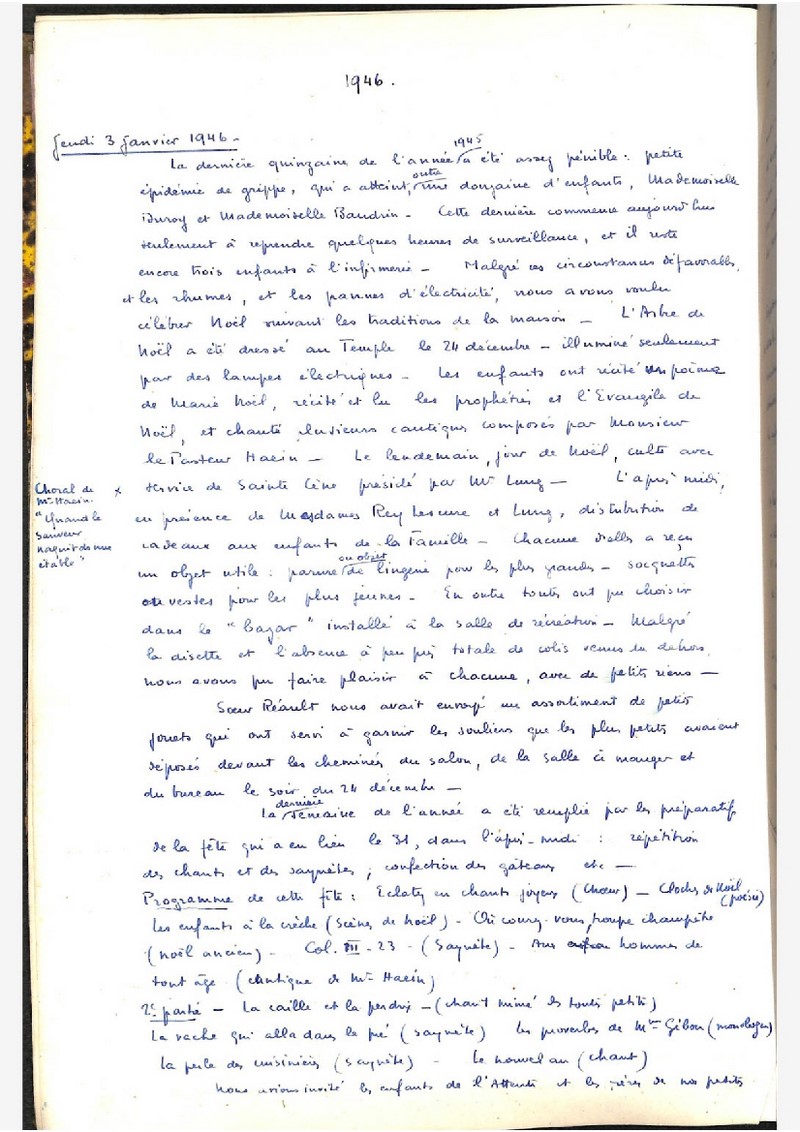 1946.
Jeudi 3 Janvier 1946.
La dernière quinzaine de l'année 1945 a été assez pénible : petite
épidémie de grippe, qui a atteint, outre une douzaine d'enfants, Mademoiselle
Duroy et Mademoiselle Baudrin. Cette dernière commence aujourd'hui
seulement à reprendre quelques heures de surveillance, et il reste
encore trois enfants à l'infirmerie - Malgré ces circonstances défavorables,
et les rhumes, et les pannes d'électricité, nous avons voulu
célébrer Noël suivant les traditions de la maison - L'Arbre de
Noël a été dressé au Temple le 24 décembre - illuminé seulement
par des lampes électriques - Les enfants ont récité un poème
de Marie Noël, récité et lu les prophéties et l'Evangile de
Noël, et chanté plusieurs cantiques composés par Monsieur
le Pasteur Haein - Le lendemain, jour de Noël, culte avec
Choral de
Mr Haein.
"Quand le
Sauveur
naquit dans une
étable"
x service de Sainte Cène présidé par Mr Lung - L'après midi,
en présence de Mesdames Rey Lescure et Lung, distribution de
cadeaux aux enfants de la Famille - Chacune d'elles a reçu
un objet utile : parure ou objet de lingerie pour les plus grandes - socquettes
ou vestes pour les plus jeunes - En outre toutes ont pu choisir
dans le "bazar" installé à la salle de récréation - Malgré
la disette et l'absence à peu près totale de colis venus du dehors,
nous avons pu faire plaisir à chacune, avec de petits riens -
Soeur Réault nous avait envoyé un assortiment de petits
jouets qui ont servi à garnir les souliers que les plus petits avaient
déposés devant les cheminées du salon, de la salle à manger et
du bureau le soir du 24 décembre -
La dernière semaine de l'année a été remplie par les préparatifs
de la fête qui a eu lieu le 31, dans l'après-midi : répétition
des chants et des saynètes ; confection des gâteaux etc -
Programme de cette fête : Eclatez en chants joyeux (Choeur) - Cloches de Noël (poésie)
Les enfants à la crèche (scènes de Noël) - Où courez-vous, troupe champêtre
(noël ancien) - Col. III - 23 - (Saynète) - Aux hommes de
tout âge (cantique de Mr Haein)
2e partie - La caille et la perdrix - (chant mimé des touts petits)
La vache qui alla dans le pré (saynète) Les proverbes de Mme Gibou (monologue)
La perle des cuisinières (saynète) - Le nouvel an (chant)
Nous avions invité les enfants de l'Attente et les mères de nos petits